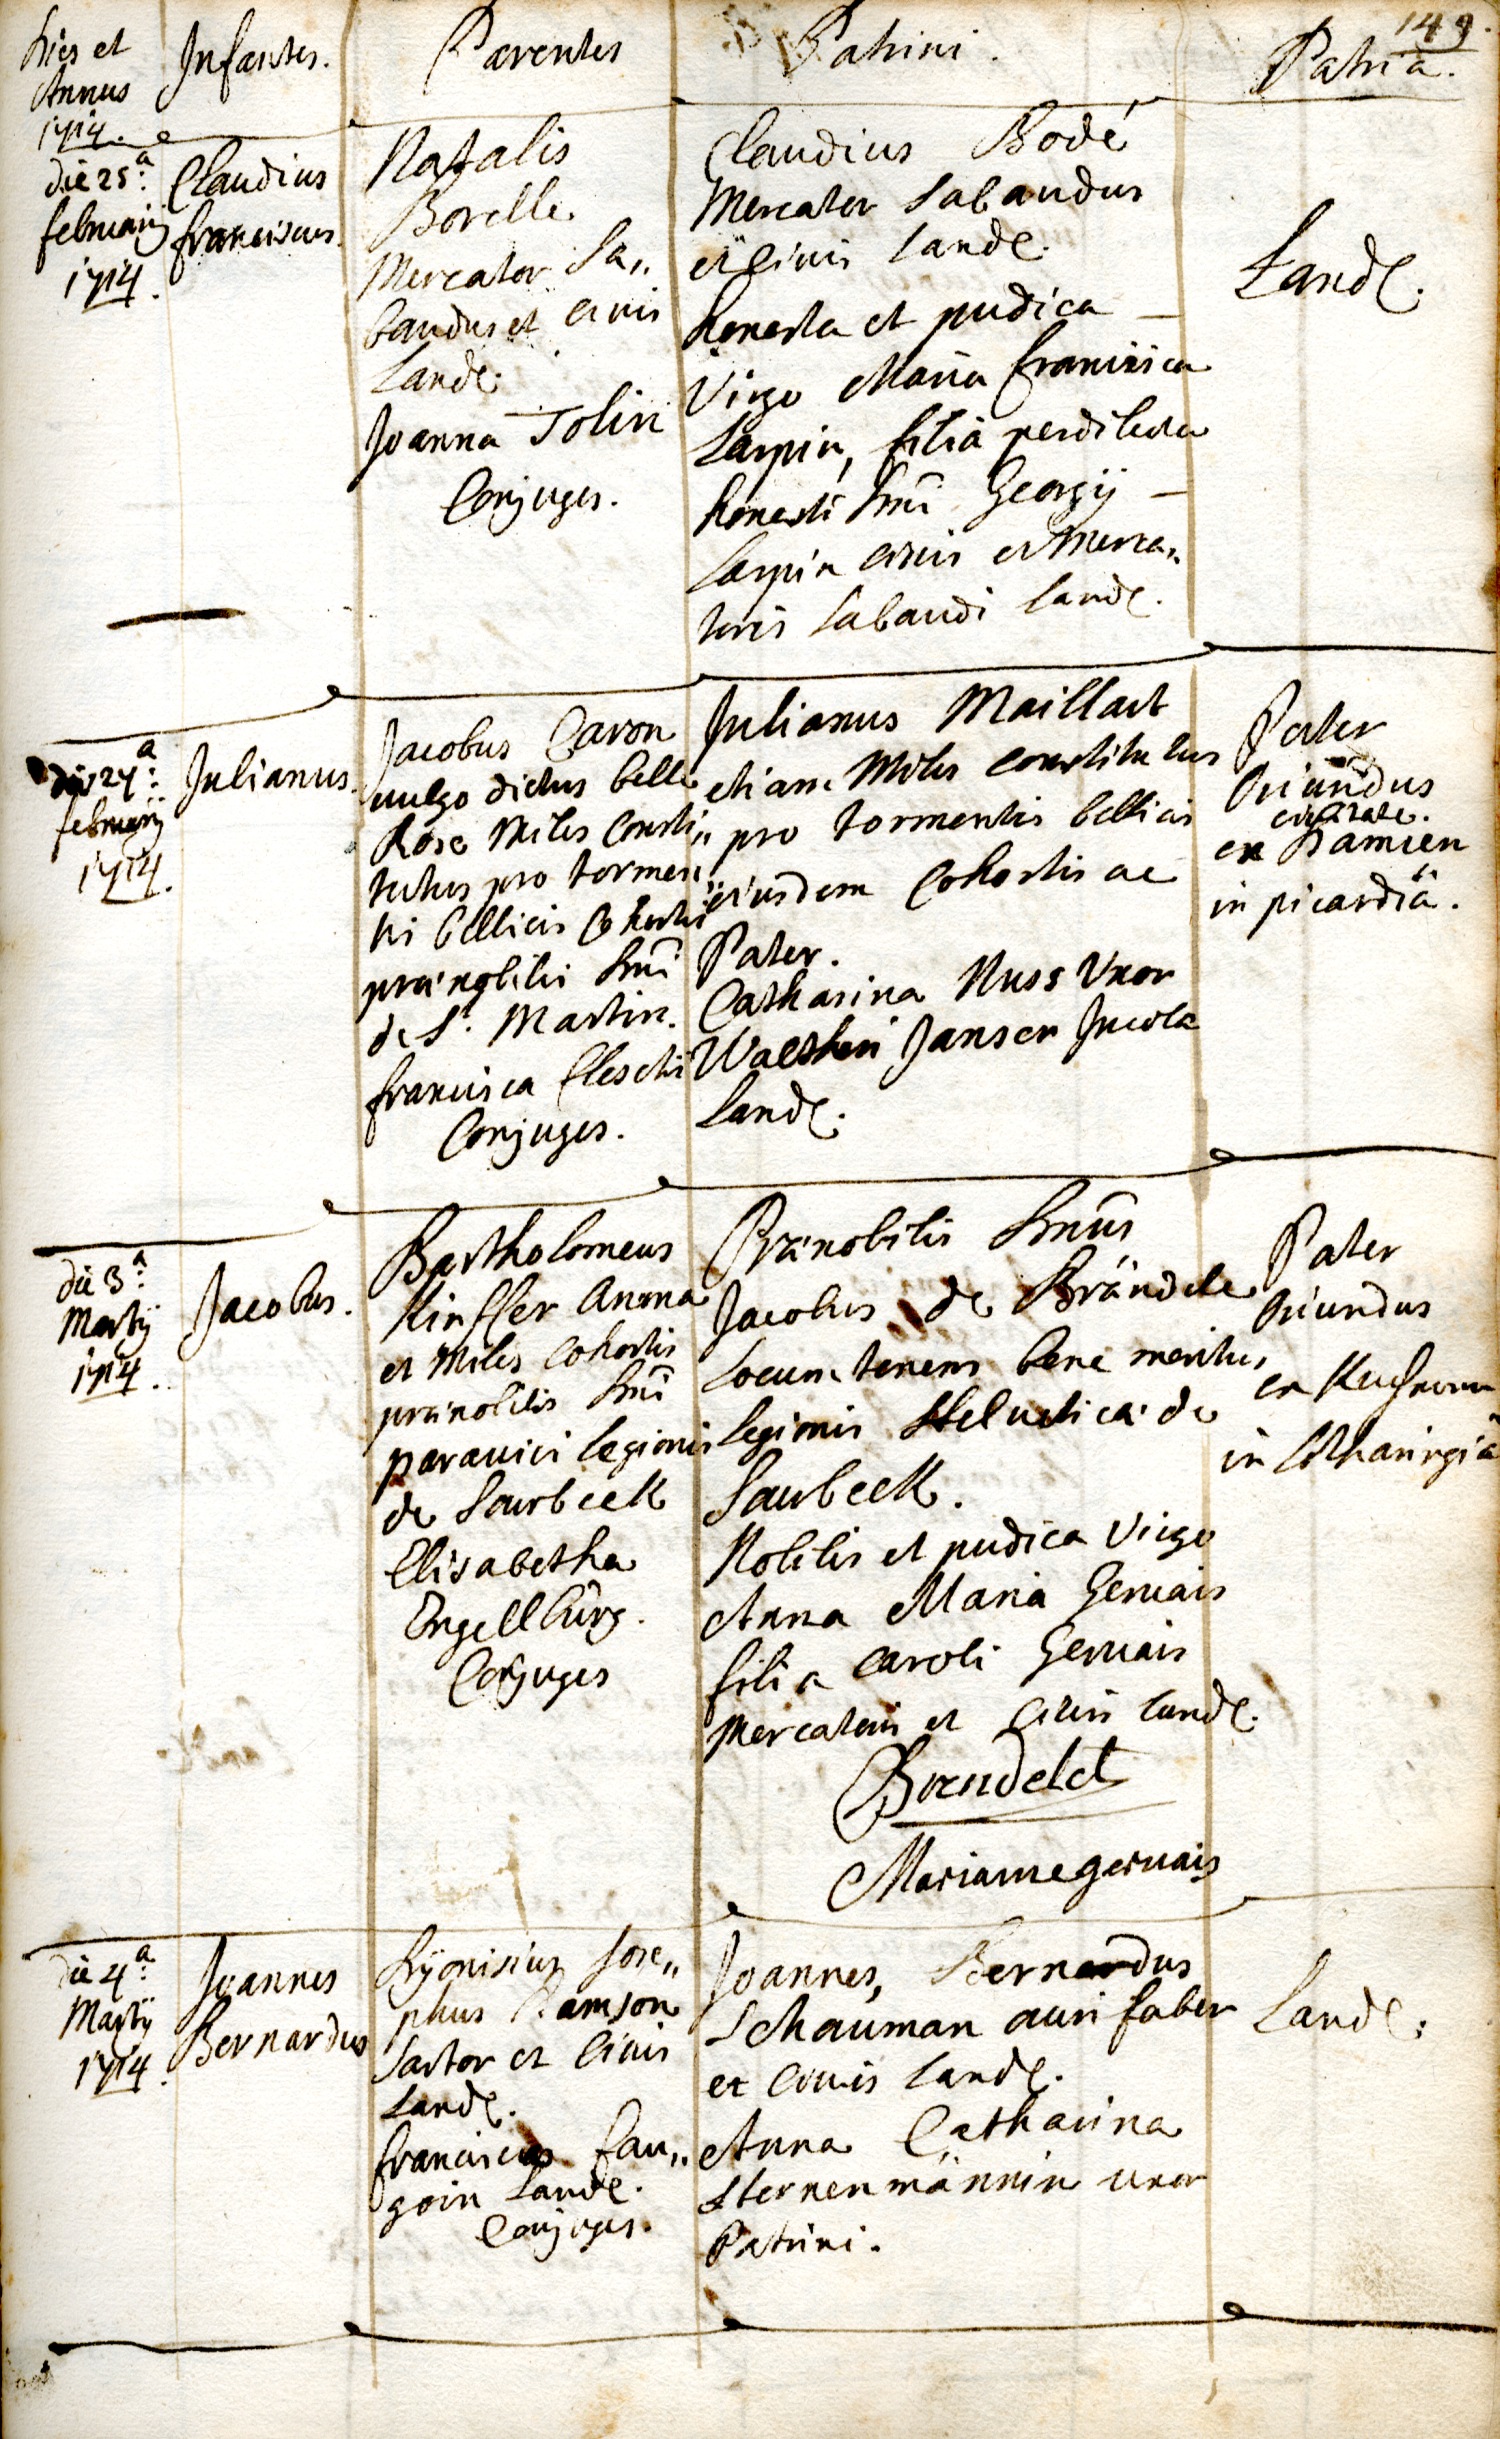 149.
Dies et
Annus
1714.
Infantes.
Parentes
Patrini.
Patria.
die 25.a
februarij
1714.
Claudius
franciscus.
Natalis
Borelle
Mercator Sa„
baudus et civis
Landt.
Joanna Jolin
Conjuges.
Claudius Bodé
Mercator Sabaudus
et civis Landt.
honesta et pudica —
Virgo Maria francisca
Larpin, filia perdilecta
honesti Dni Georgij —
Larpin civis et Merca„
toris Sabaudi Landt.
Landt.
die 27.a
februarij
1714.
Julianus.
Jacobus Caron
vulgo dictus belle
Rose Miles Consti„
tutus pro tormen„
tis bellicis Cohortis
prænobilis Dni
de St. Martin.
francisca
Conjuges.
Julianus Maillart
etiam Miles constitutus
pro tormentis bellicis
eiusdem Cohortis ac
Pater.
Catharina Nuss Uxor
Waltheri Jansen Incolæ
Landt.
Pater
Oriundus
civitate.
ex Damien
in picardiâ.
die 3.a
Martij
1714.
Jacobus.
Bartholomeus
Kinffer
et Miles Cohortis
prænobilis Dni
paravici legionis
de Sourbeck
Elisabetha
Engellbürg.
Conjuges
Prænobilis Dnus
Jacobus de Brändele
Locum tenens bene meritus
legionis Helveticæ de
Saurbeck.
Nobilis et pudica Virgo
Anna Maria Gervais
filia Caroli Gervais
Mercatoris et Civis Landt.
Brendelet
Mariannegervais
Pater
Oriundus
ex
in lotharingiâ
die 4.a
Martij
1714.
Joannes
Bernardus
Dyonisius Jose„
phus Ramson
Sartor et Civis
Landt.
francisca fau„
goin Landt.
Conjuges.
Joannes, Bernardus
Schauman auri faber
et Civis Landt.
Anna Catharina
Sternenmännin uxor
Patrini.
Landt.